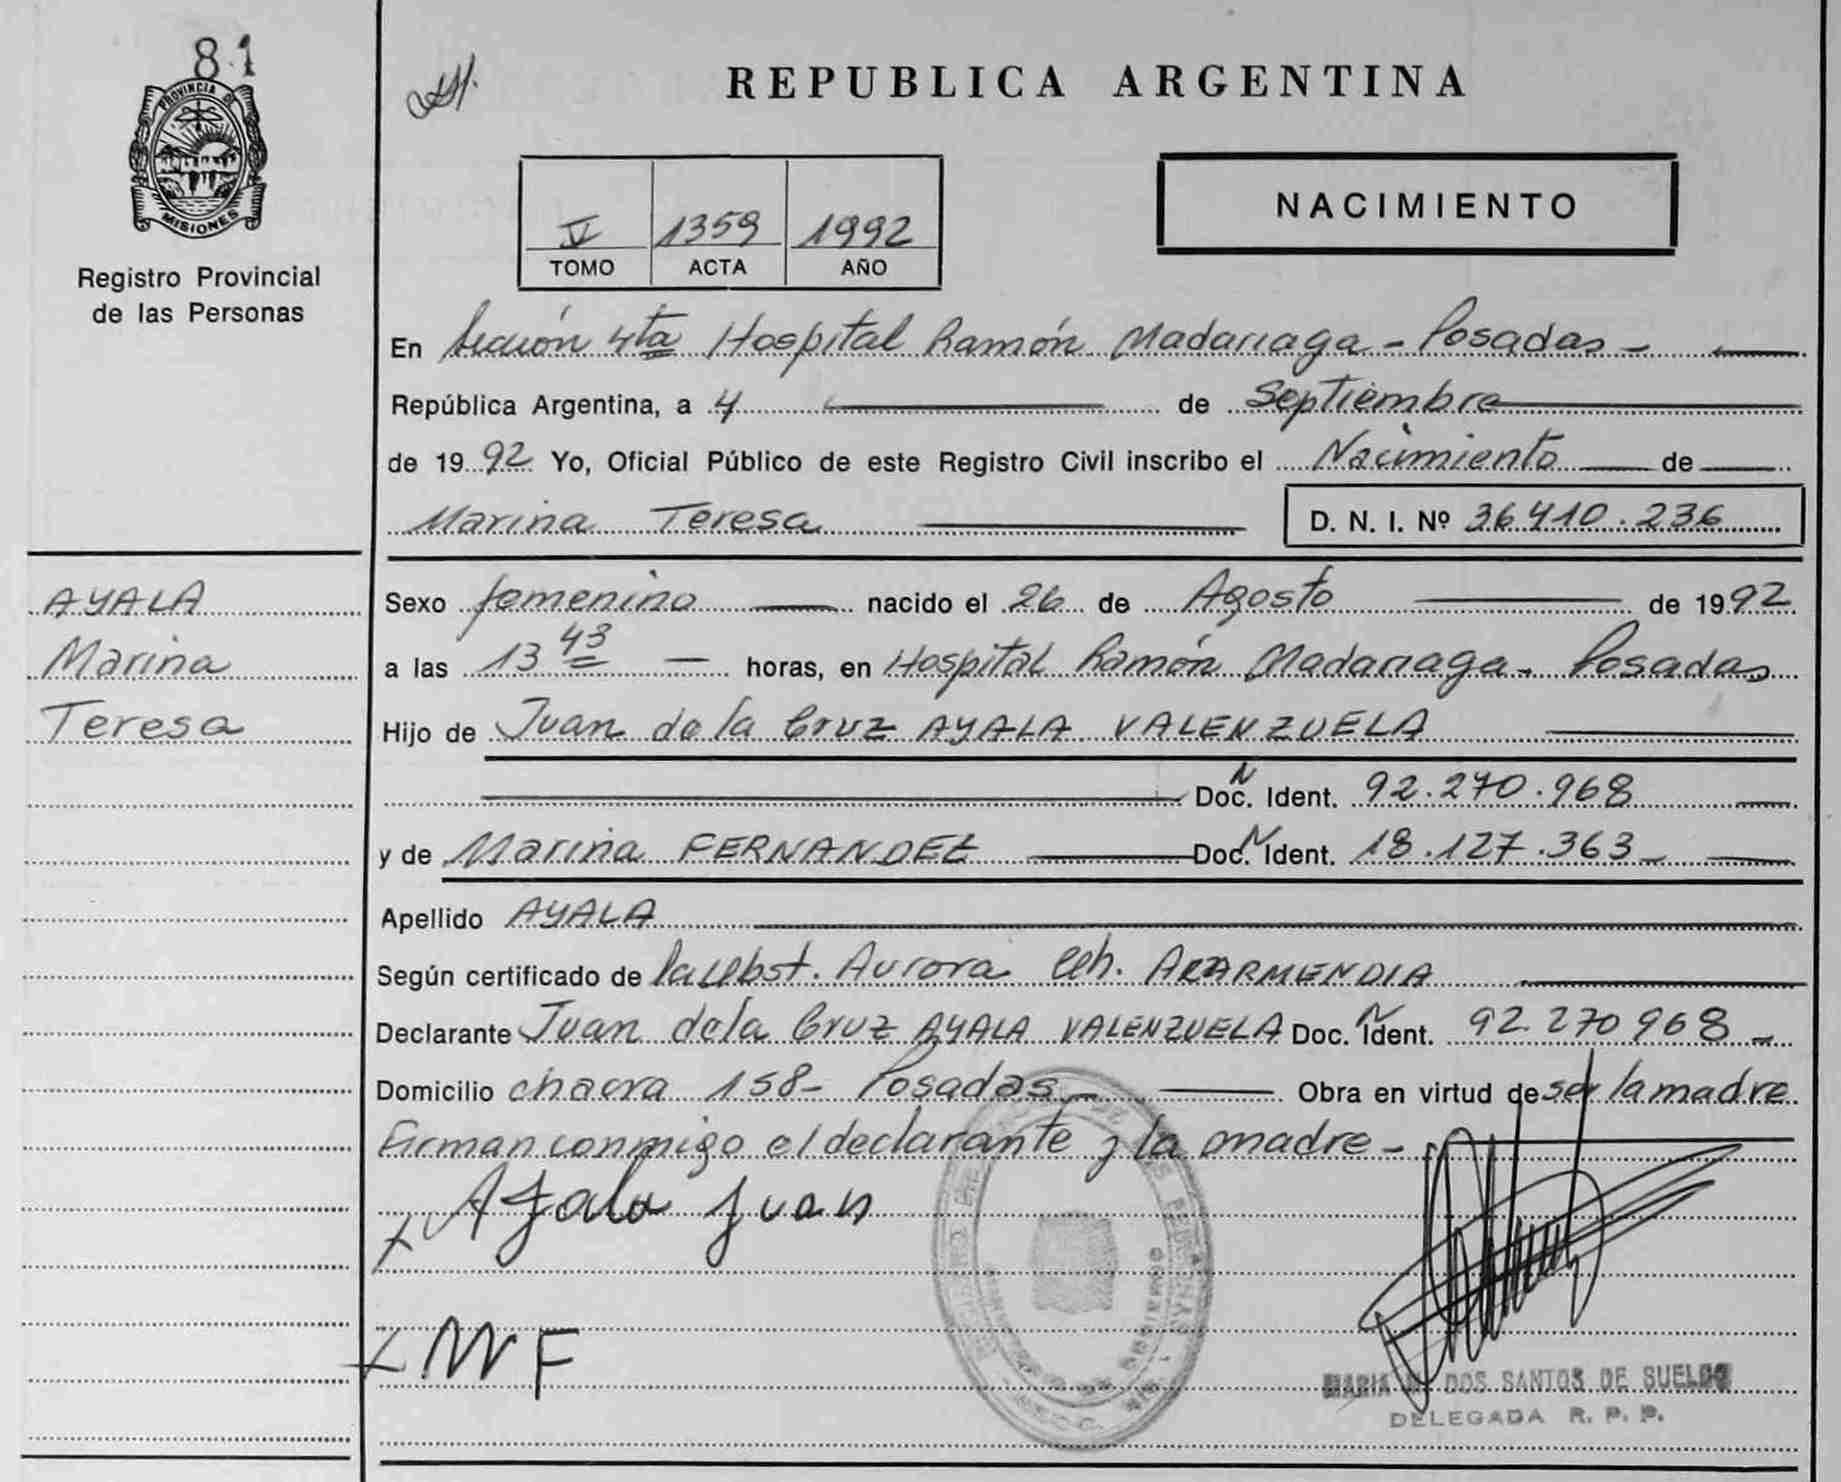 81
PROVINCIA DE
MISIONES
Registro Provincial
de las Personas
REPUBLICA ARGENTINA
V 1359 1992
TOMO ACTA AÑO
NACIMIENTO
En Sección 4ta Hospital Ramón Madariaga - Posadas -
República Argentina, a 4 de Septiembre
de 1992 Yo, Oficial Público de este Registro Civil inscribo el Nacimiento de
Marina Teresa D. N. I. Nº 36.410.236
AYALA
Marina
Teresa
Sexo femenino nacido el 26 de Agosto de 1992
a las 13 43 horas, en Hospital Ramón Madariaga - Posadas
Hijo de Juan de la Cruz AYALA VALENZUELA
Doc. Ident. 92.270.968
y de Marina FERNANDEZ Doc. Ident. 18.127.363
Apellido AYALA
Según certificado de la Obst. Aurora ARZARMENDIA
Declarante Juan de la Cruz AYALA VALENZUELA Doc. Ident. 92.270968
Domicilio chacra 158 - Posadas - Obra en virtud de ser la madre
Firman conmigo el declarante y la madre -
x Ayala Juan
x M F
MARIA DOS SANTOS DE SUELDO
DELEGADA R. P. P.